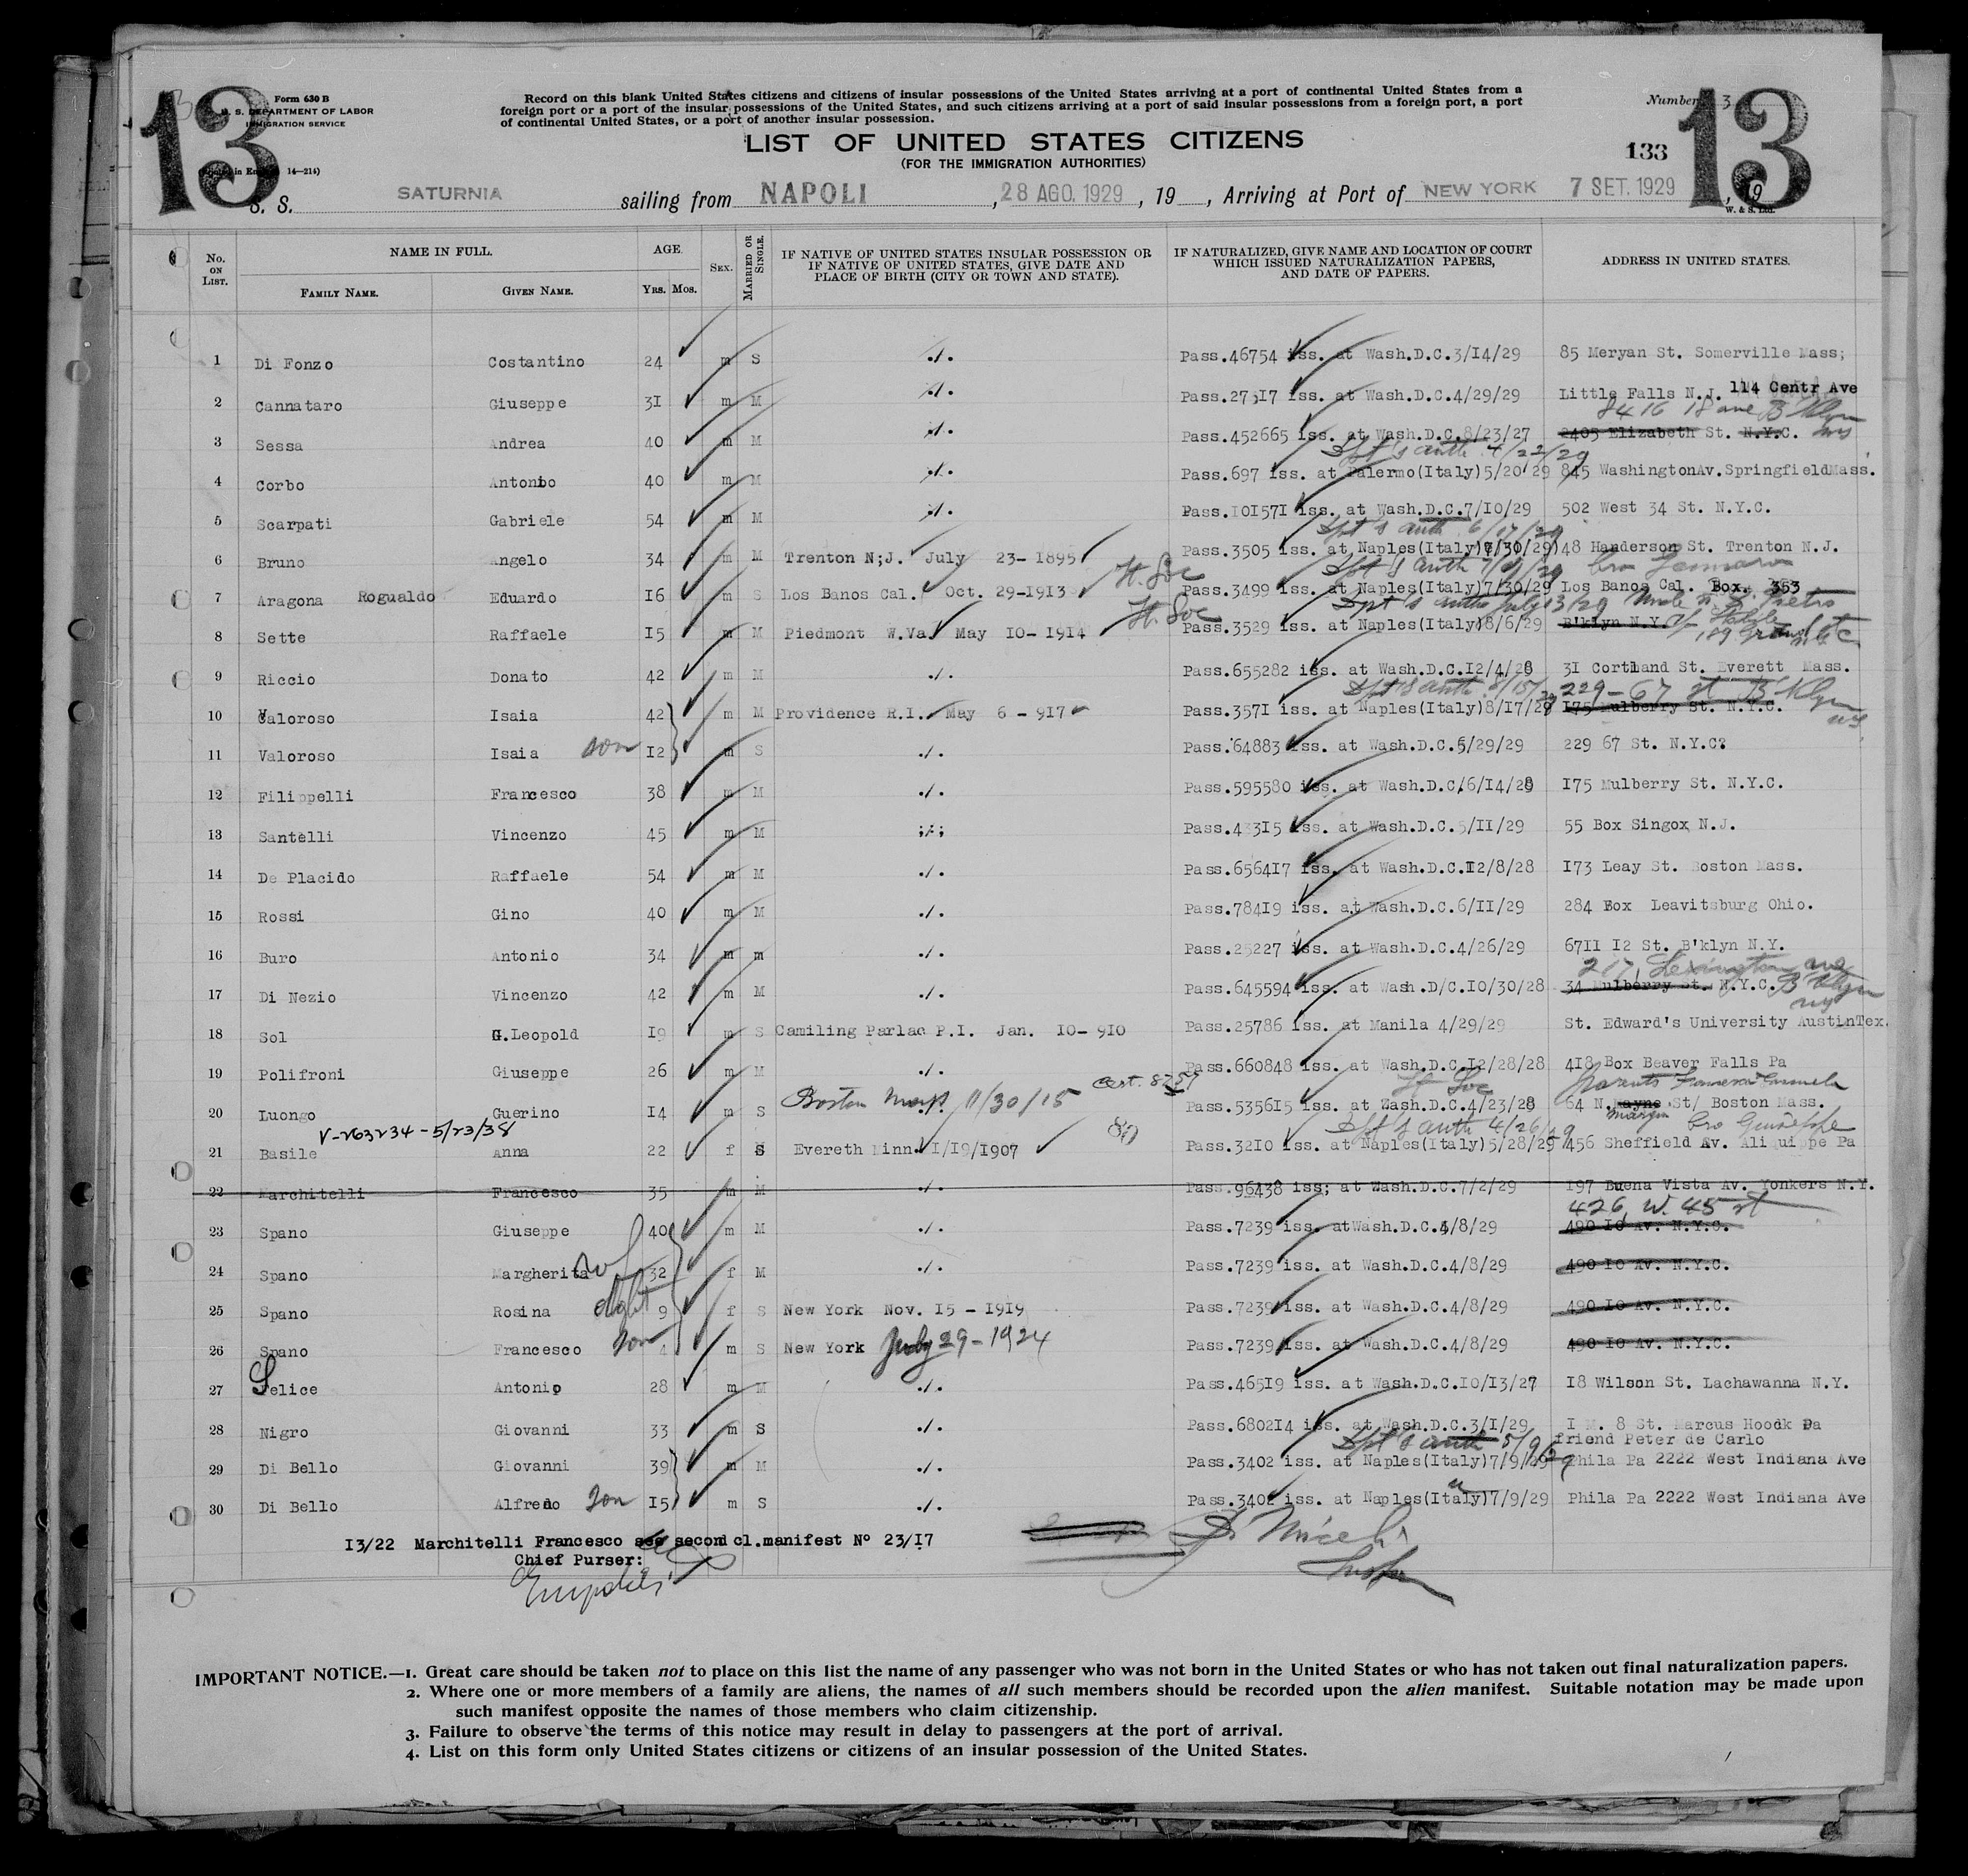 13
Form 630 B
U. S. DEPARTMENT OF LABOR
IMMIGRATION SERVICE
14—214)
Record on this blank United States citizens and citizens of insular possessions of the United States arriving at a port of continental United States from a
foreign port or a port of the insular possessions of the United States, and such citizens arriving at a port of said insular possessions from a foreign port, a port
of continental United States, or a port of another insular possession.
Number 3
13
LIST OF UNITED STATES CITIZENS
(FOR THE IMMIGRATION AUTHORITIES)
133
S. S. SATURNIA sailing from NAPOLI , 28 AGO. 1929 , 19 , Arriving at Port of NEW YORK 7 SET. 1929 , 19
W. & S. Ltd.
No. ON LIST. NAME IN FULL. AGE. SEX. MARRIED OR SINGLE. IF NATIVE OF UNITED STATES INSULAR POSSESSION OR IF NATIVE OF UNITED STATES, GIVE DATE AND PLACE OF BIRTH (CITY OR TOWN AND STATE). IF NATURALIZED, GIVE NAME AND LOCATION OF COURT WHICH ISSUED NATURALIZATION PAPERS, AND DATE OF PAPERS. ADDRESS IN UNITED STATES.
FAMILY NAME. GIVEN NAME. YRS. MOS.
1 Di Fonzo Costantino 24 m S ./. Pass.46754 iss. at Wash.D.C.3/14/29 85 Meryan St. Somerville Mass;
2 Cannataro Giuseppe 31 m M ./. Pass.27517 iss. at Wash.D.C.4/29/29 Little Falls N.J. 114 Centr Ave
8416 18 ave B'klyn
3 Sessa Andrea 40 m M ./. Pass.452665 iss. at Wash.D.C.8/23/27 2405 Elizabeth St. N.Y.C. NY
Dpt's auth 4/22/29
4 Corbo Antonio 40 m M ./. Pass.697 iss. at Palermo(Italy)5/20/29 845 WashingtonAv.SpringfieldMass.
5 Scarpati Gabriele 54 m M ./. Pass.101571 iss. at Wash.D.C.7/10/29 502 West 34 St. N.Y.C.
Dpt's auth 6/17/29
6 Bruno Angelo 34 m M Trenton N;J. July 23- 1895 Pass.3505 iss. at Naples(Italy)7/30/29) 48 Handerson St. Trenton N.J.
Dpt's auth
7 Aragona Rogualdo Eduardo 16 m S Los Banos Cal. Oct. 29-1913 Pass.3499 iss. at Naples(Italy)7/30/29 Los Banos Cal. Box. 353
Dpt's auth July 13/29
8 Sette Raffaele 15 m M Piedmont W.Va. May 10- 1914 Pass.3529 iss. at Naples(Italy)8/6/29 B'klyn N.Y.
9 Riccio Donato 42 m M ./. Pass.655282 iss. at Wash.D.C.12/4/28 31 Cortland St. Everett Mass.
Dpt's auth 8/15/29 229-67 st B'klyn
10 Valoroso Isaia 42 m M Providence R.I. May 6 - 917 Pass.3571 iss. at Naples(Italy)8/17/29 175 Mulberry St. N.Y.C. NY
11 Valoroso Isaia son 12 m S ./. Pass.64883 iss. at Wash.D.C.5/29/29 229 67 St. N.Y.C?
12 Filippelli Francesco 38 m M ./. Pass.595580 iss. at Wash.D.C/6/14/28 175 Mulberry St. N.Y.C.
13 Santelli Vincenzo 45 m M ;/; Pass.43315 iss. at Wash.D.C.5/11/29 55 Box Singox N.J.
14 De Placido Raffaele 54 m M ./. Pass.656417 iss. at Wash.D.C.12/8/28 173 Leay St. Boston Mass.
15 Rossi Gino 40 m M ./. Pass.78419 iss. at Wash.D.C.6/11/29 284 Box Leavitsburg Ohio.
16 Buro Antonio 34 m m ./. Pass.25227 iss. at Wash.D.C.4/26/29 6711 12 St. B'klyn N.Y.
217 Lexington ave
17 Di Nezio Vincenzo 42 m M ./. Pass.645594 iss. at Wash.D/C.10/30/28 34 Mulberry St. N.Y.C. B'klyn NY
18 Sol G.Leopold 19 m S Camiling Parlac P.I. Jan. 10- 910 Pass.25786 iss. at Manila 4/29/29 St. Edward's University AustinTex.
19 Polifroni Giuseppe 26 m M ./. Pass.660848 iss. at Wash.D.C.12/28/28 418 Box Beaver Falls Pa
20 Luongo Guerino 14 m S Boston Mass. 11/30/15 Pass.535615 iss. at Wash.D.C.4/23/28 64 N.Wayne St/ Boston Mass.
V-263234-5/23/38 Dpt's auth 4/26/29 margin bro Guiseppe
21 Basile Anna 22 f S Evereth Minn. 1/19/1907 Pass.3210 iss. at Naples(Italy)5/28/29 1456 Sheffield Av. Aliquippe Pa
22 Marchitelli Francesco 35 m M ./. Pass.96438 iss; at Wash.D.C.7/2/29 197 Buena Vista Av. Yonkers N.Y.
426, W. 45 st
23 Spano Giuseppe 40 m M ./. Pass.7239 iss. atWash.D.C.4/8/29 490 10 Av. N.Y.C.
24 Spano Margherita wf 32 f M ./. Pass.7239 iss. at Wash.D.C.4/8/29 490 10 Av. N.Y.C.
25 Spano Rosina dght 9 f S New York Nov. 15 - 1919 Pass.7239 iss. at Wash.D.C.4/8/29 490 10 Av. N.Y.C.
26 Spano Francesco son 4 m S New York July 29-1924 Pass.7239 iss. at Wash.D.C.4/8/29 490 10 Av. N.Y.C.
27 Felice Antonio 28 m M ./. Pass.46519 iss. at Wash.D.C.10/13/27 18 Wilson St. Lachawanna N.Y.
28 Nigro Giovanni 33 m S ./. Pass.680214 iss. at Wash.D.C.3/1/29 1 M. 8 St. Marcus Hoodk Pa
Dpt's auth 5/9/29 friend Peter de Carlo
29 Di Bello Giovanni 39 m M ./. Pass.3402 iss. at Naples(Italy)7/9/29 Phila Pa 2222 West Indiana Ave
30 Di Bello Alfredo son 15 m S ./. Pass.3402 iss. at Naples(Italy)7/9/29 Phila Pa 2222 West Indiana Ave
13/22 Marchitelli Francesco see second cl.manifest N° 23/17
Chief Purser:
IMPORTANT NOTICE.—1. Great care should be taken not to place on this list the name of any passenger who was not born in the United States or who has not taken out final naturalization papers.
2. Where one or more members of a family are aliens, the names of all such members should be recorded upon the alien manifest. Suitable notation may be made upon
such manifest opposite the names of those members who claim citizenship.
3. Failure to observe the terms of this notice may result in delay to passengers at the port of arrival.
4. List on this form only United States citizens or citizens of an insular possession of the United States.